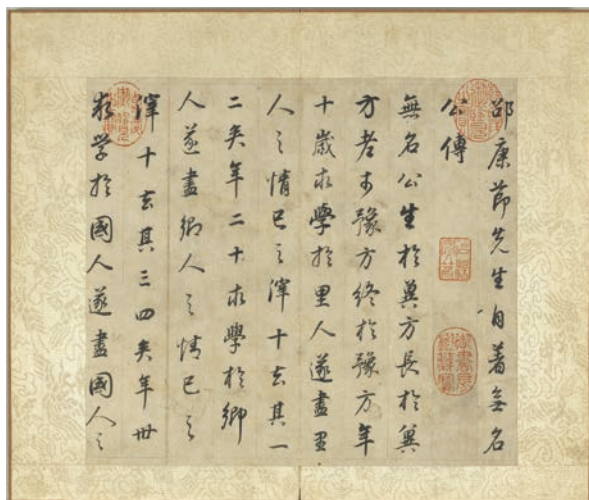 邵康節先生自著無名
公傳
無名公生於冀方長於冀
方老於豫方終於豫方年
十歲求學於里人遂盡里
人之情已之滓十去其一
二矣年二十求學於鄉
人遂盡鄉人之情已之
滓十去其三四矣年卅
求学於國人遂盡國人之